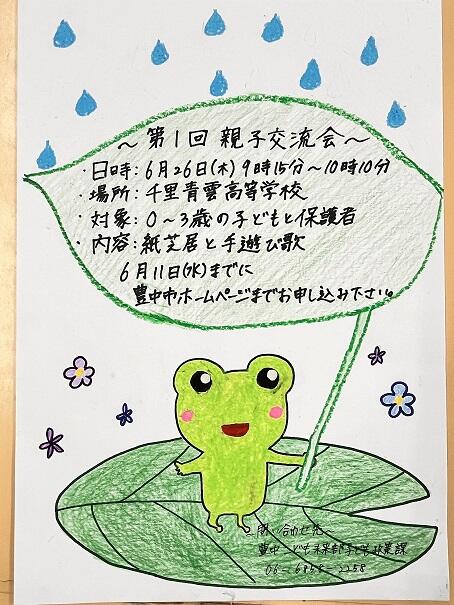 ～第1回 親子交流会～
・日時：6月26日(木) 9時15分～10時10分
・場所：千里青雲高等学校
・対象：0～3歳の子どもと保護者
・内容：紙芝居と手遊び歌
6月11日(水)までに
豊中市ホームページまでお申し込み下さい。
問い合わせ先
豊中 こども未来部
06-6858-2258